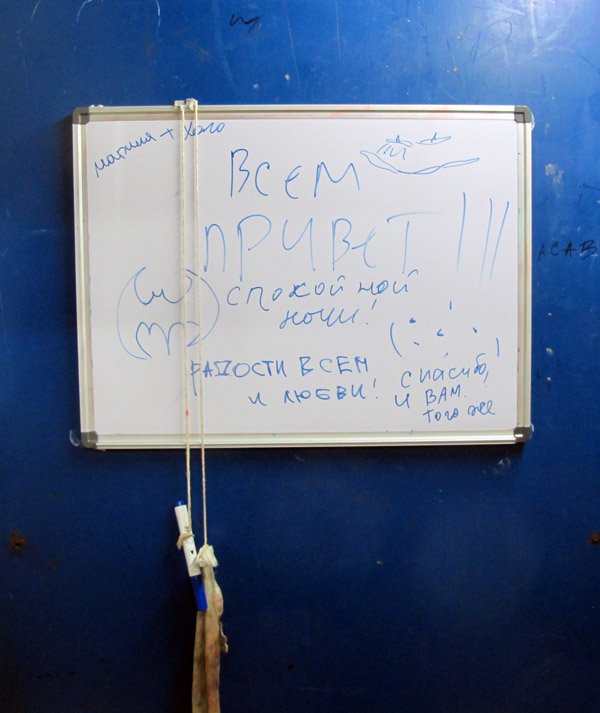 ВСЕМ
ПРИВЕТ!!!
СПОКОЙНОЙ
НОЧИ!
РАДОСТИ ВСЕМ
И ЛЮБВИ!
спасибо,
И ВАМ.
того же!
A.C.A.B